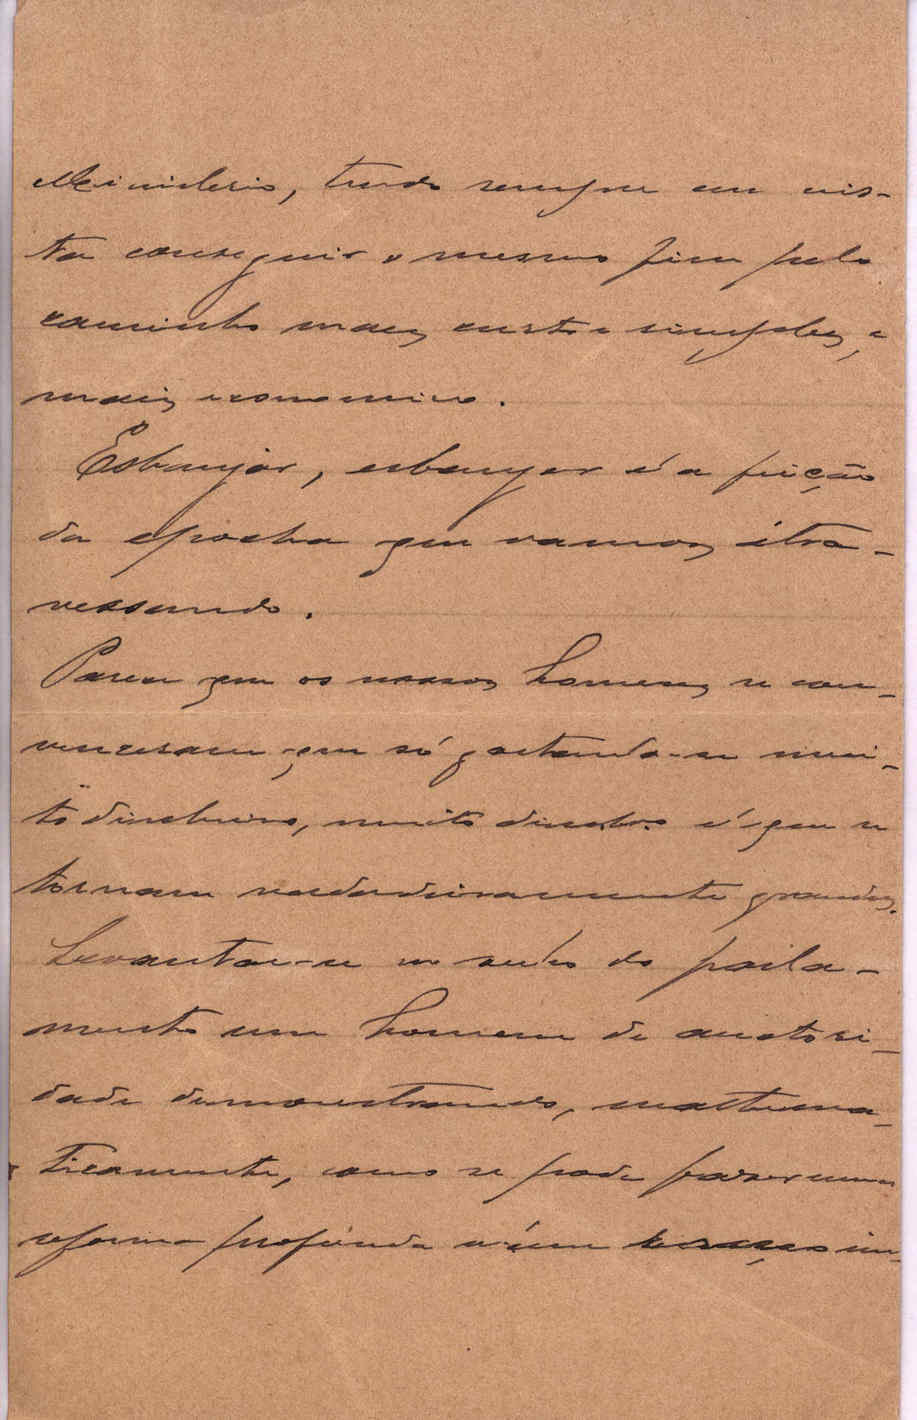 Ministerio, tendo sempre em vis-
ta conseguir o mesmo fim pelo
caminho mais curto e simples, e
mais economico.
Esbanjar, esbanjar é a feição
da epocha que vamos atra-
vessando.
Parece que os nossos homens se con-
venceram que só gastando-se mui-
to dinheiro, muito dinheiro é que se
tornam verdadeiramente grandes.
Levantou-se no seio do parla-
mento um homem de auctori-
dade demonstrando, mathema-
ticamente, como se pode fazer uma
reforma profunda n'um serviço im-